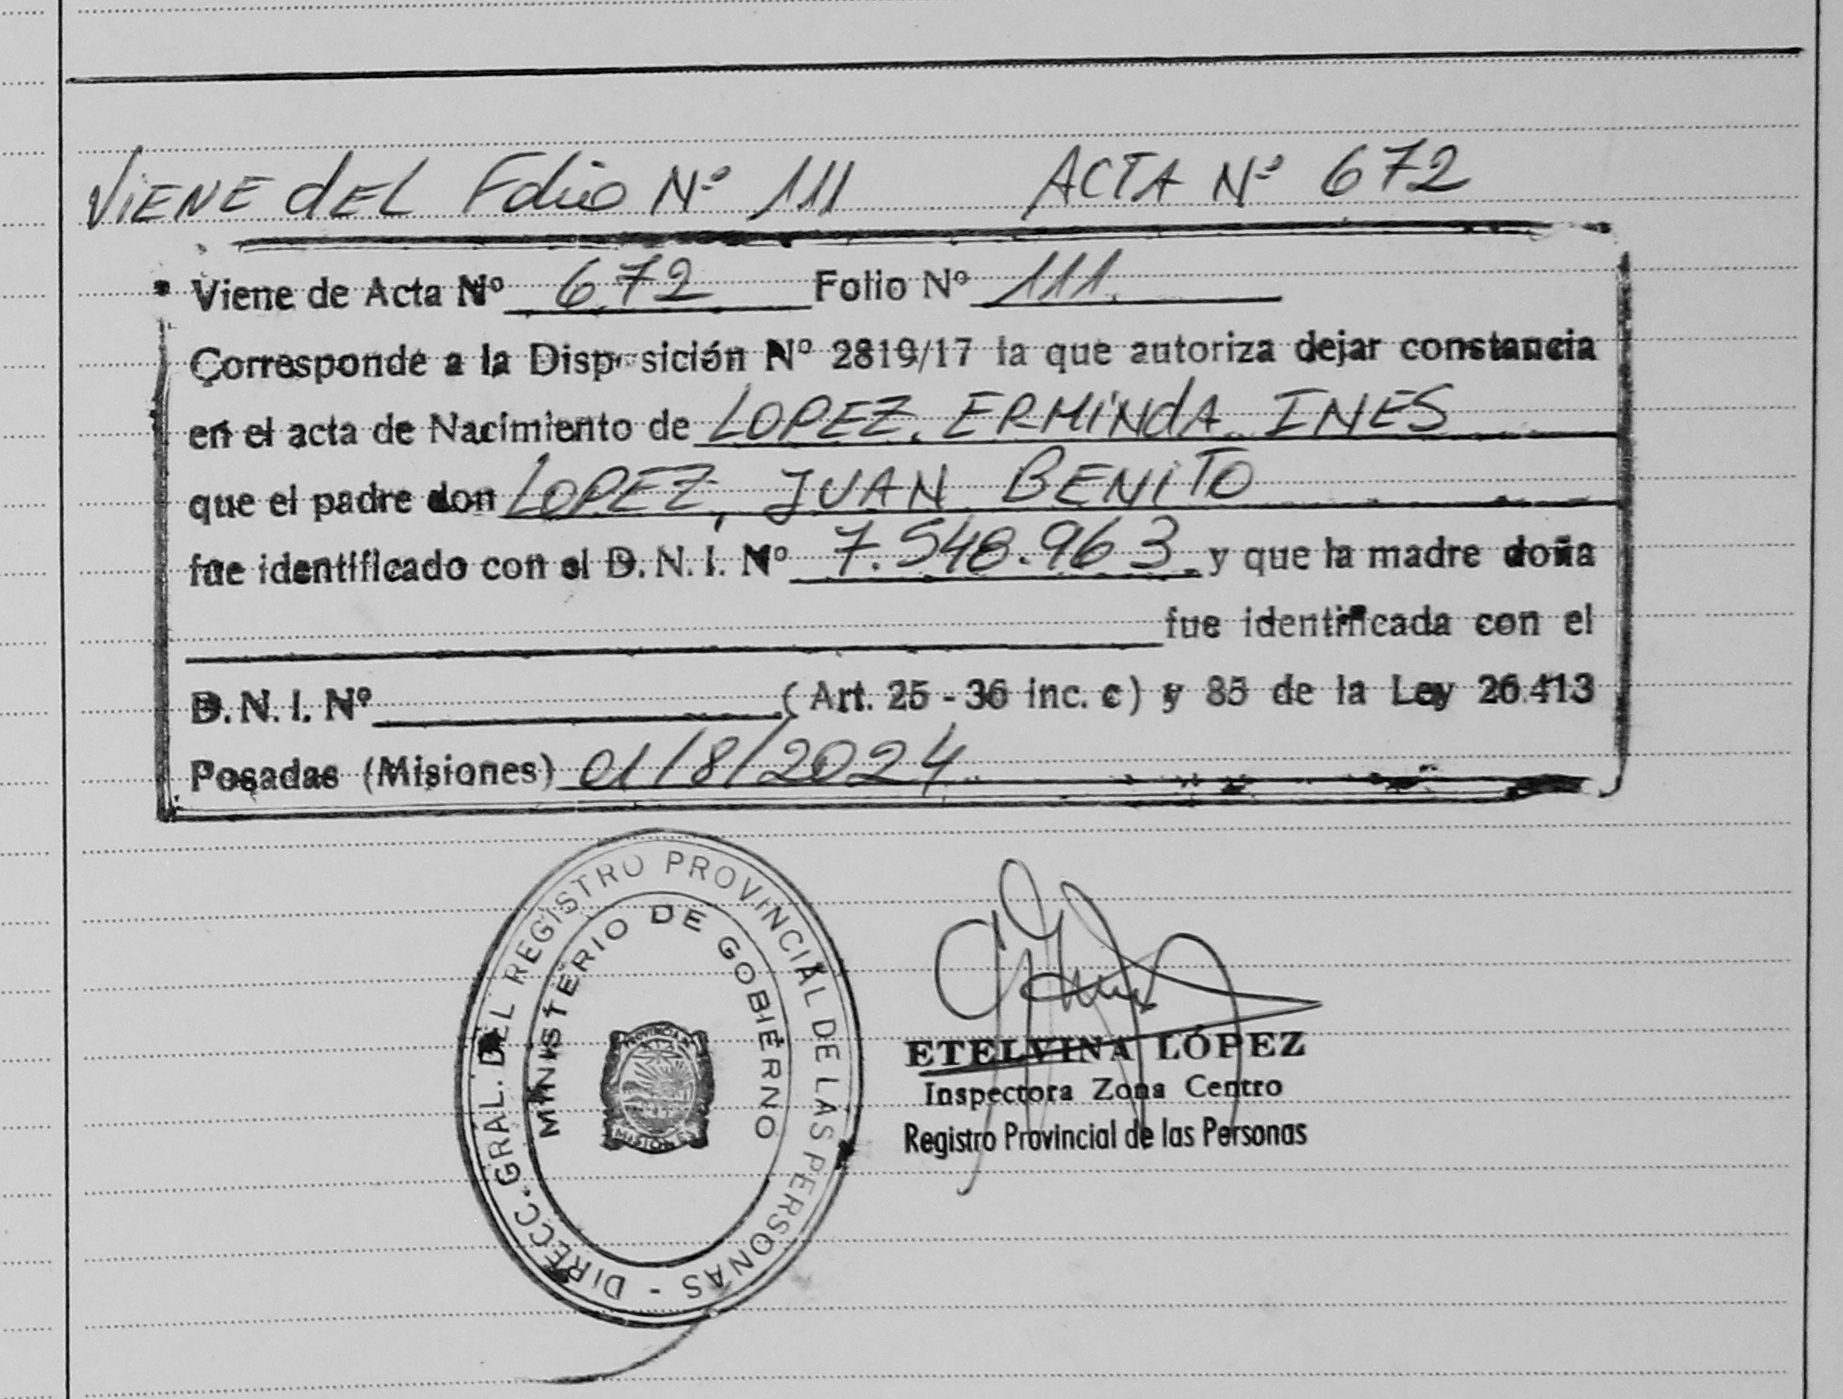 ViENE dEL Folio Nº 111 ACTA Nº 672
Viene de Acta Nº 672 Folio Nº 111.
Corresponde a la Disposición Nº 2819/17 la que autoriza dejar constancia
en el acta de Nacimiento de LOPEZ, ERMINdA INES
que el padre don LOPEZ, JUAN BENITO
fue identificado con el D. N. I. Nº 7.548.963 y que la madre doña
fue identificada con el
D. N. I. Nº (Art. 25 - 36 inc. c) y 85 de la Ley 26.413
Posadas (Misiones) 01/8/2024
DIRECC. GRAL. DEL REGISTRO PROVINCIAL DE LAS PERSONAS -
MINISTERIO DE GOBIERNO
PROVINCIA DE
MISIONES
ETELVINA LÓPEZ
Inspectora Zona Centro
Registro Provincial de las Personas